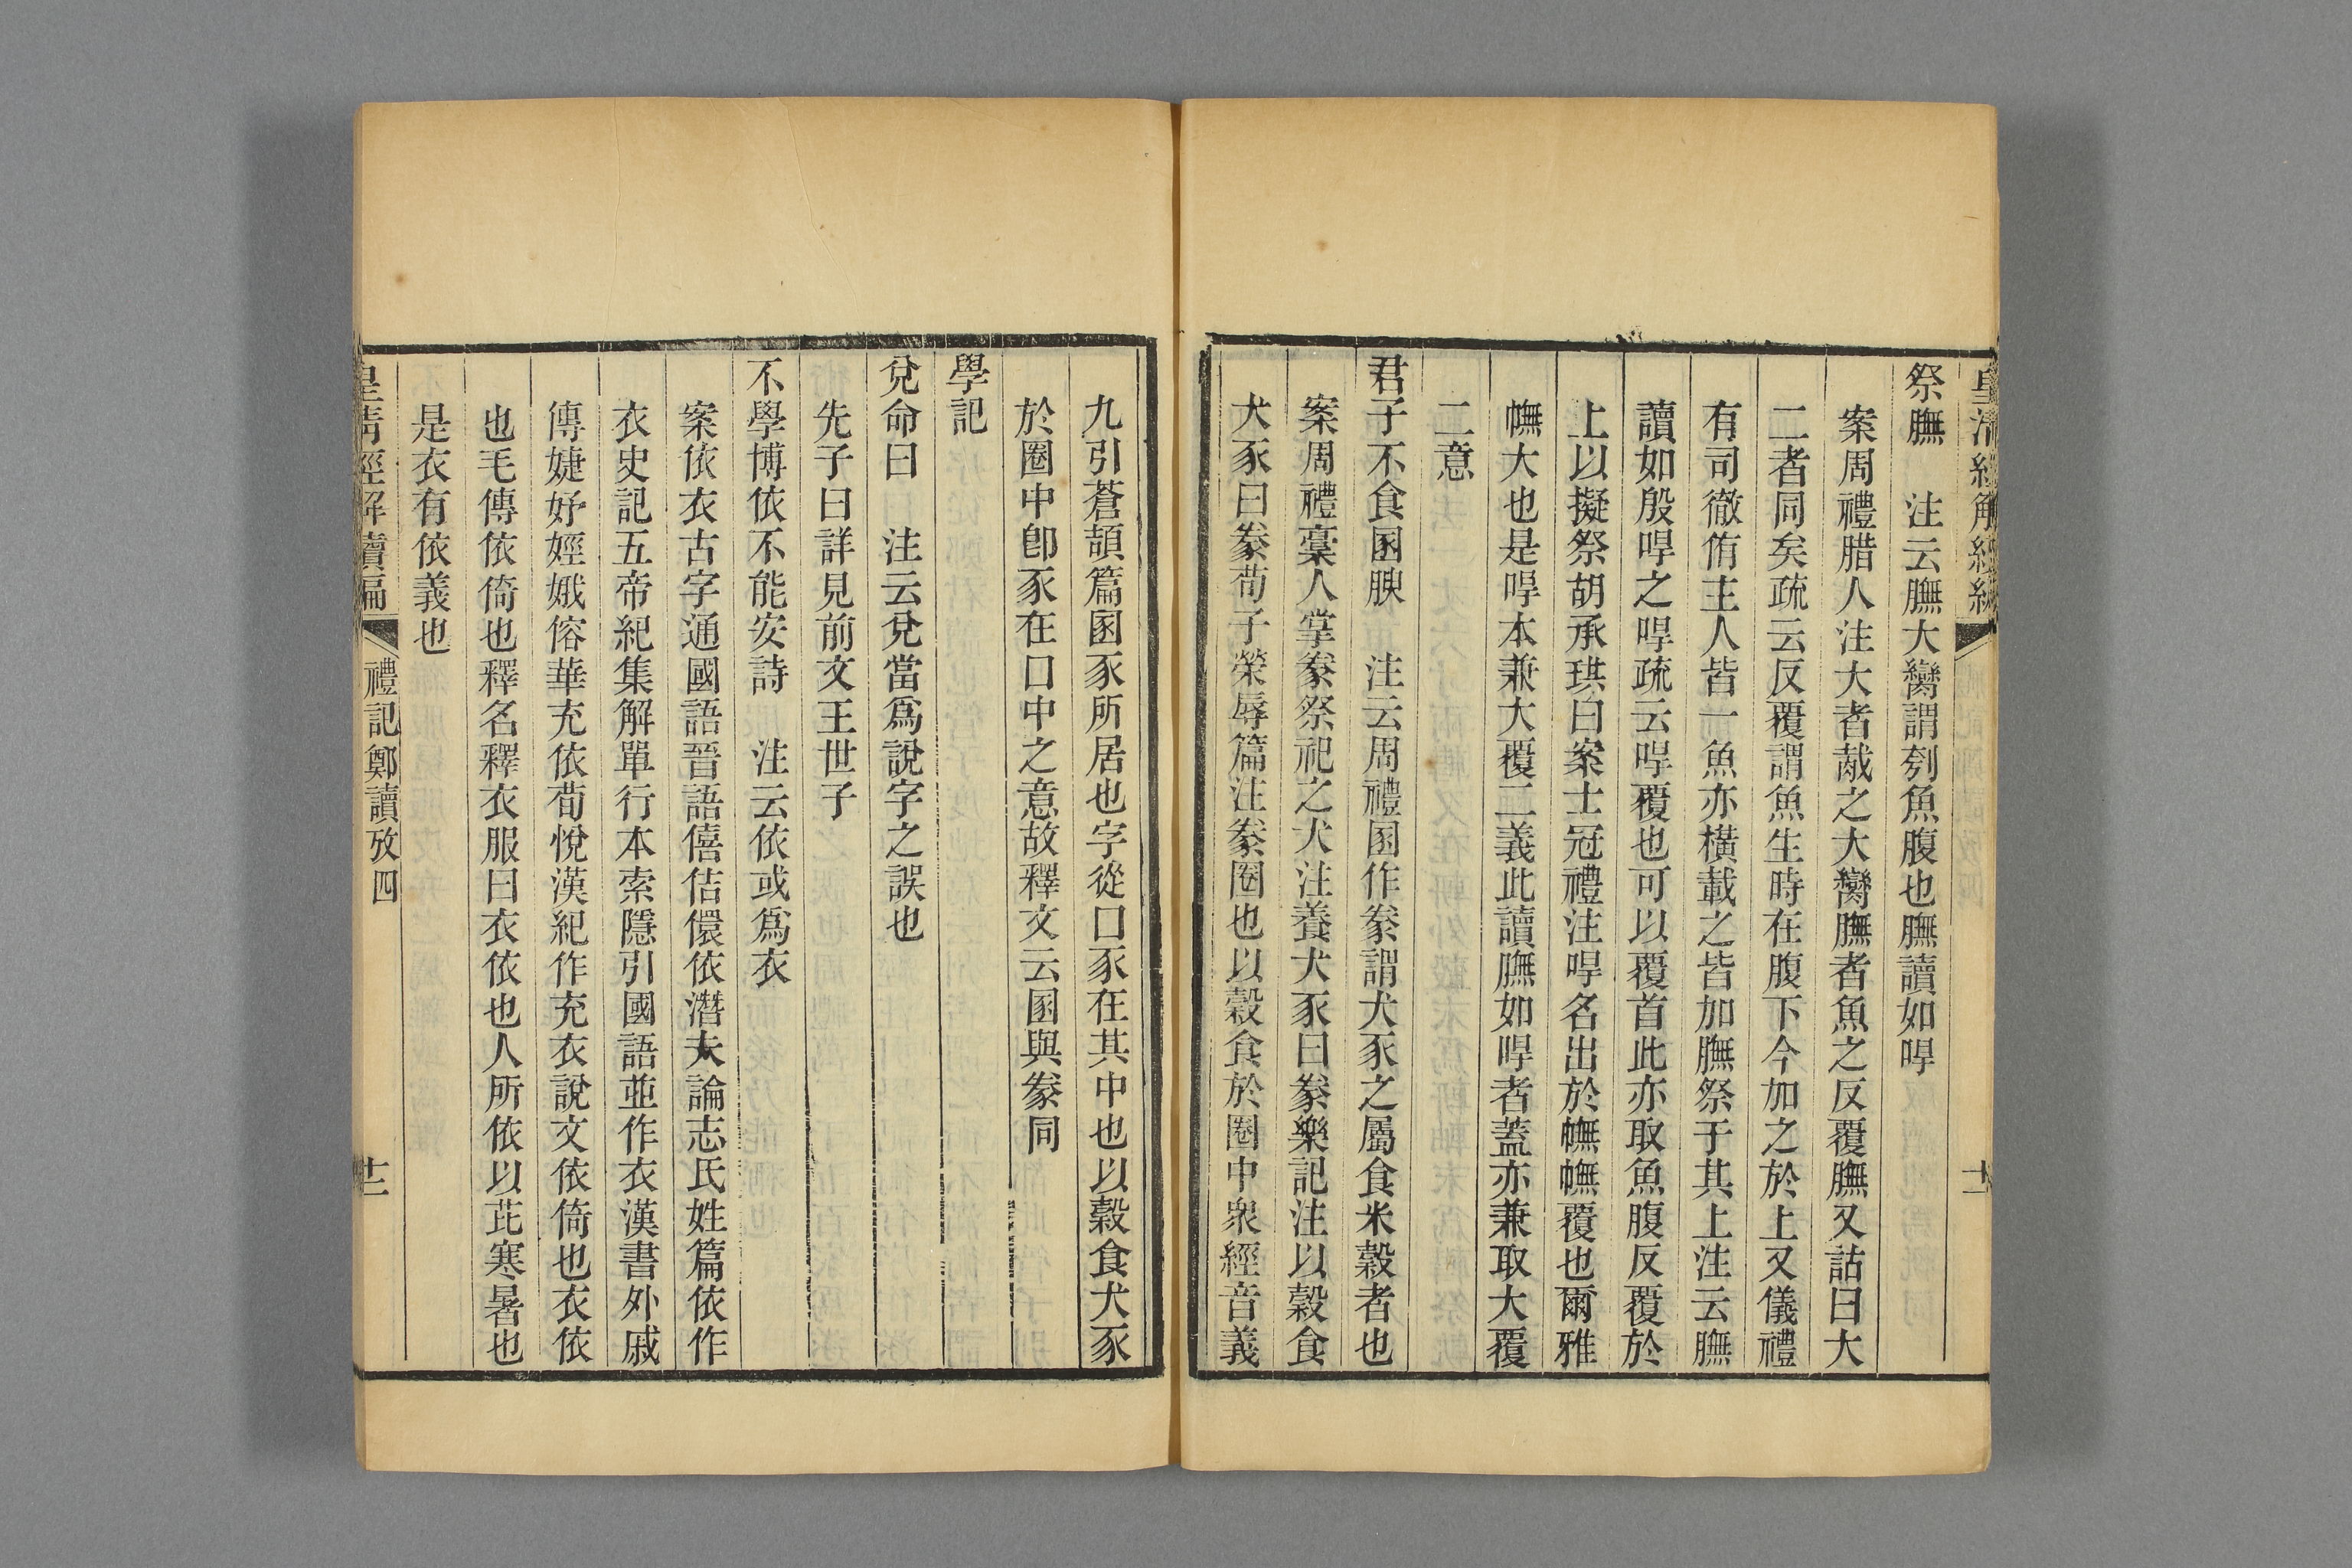 祭膴　注云膴大臠謂刳魚腹也膴讀如冔
案周禮腊人注大者胾之大臠膴者魚之反覆膴又詁曰大
二者同矣疏云反覆謂魚生時在腹下今加之於上又儀禮
有司徹侑主人皆一魚亦橫載之皆加膴祭于其上注云膴
讀如殷冔之冔疏云冔覆也可以覆首此亦取魚腹反覆於
上以擬祭胡承珙曰案士冠禮注冔名出於幠幠覆也爾雅
幠大也是冔本兼大覆二義此讀膴如冔者蓋亦兼取大覆
二意
君子不食圂腴　注云周禮圂作豢謂犬豕之屬食米穀者也
案周禮稾人掌豢祭祀之犬注養犬豕曰豢樂記注以穀食
犬豕曰豢荀子榮辱篇注豢圈也以穀食於圈中衆經音義
九引蒼頡篇圂豕所居也字從囗豕在其中也以穀食犬豕
於圈中卽豕在囗中之意故釋文云圂與豢同
學記
兌命曰　注云兌當爲說字之誤也
先子曰詳見前文王世子
不學博依不能安詩　注云依或爲衣
案依衣古字通國語晉語僖佶儇依潛夫論志氏姓篇依作
衣史記五帝紀集解單行本索隱引國語並作衣漢書外戚
傳婕妤娙娥傛華充依荀悅漢紀作充衣說文依倚也衣依
也毛傳依倚也釋名釋衣服曰衣依也人所依以芘寒暑也
是衣有依義也
皇淸經解續編　禮記鄭讀攷四　十二